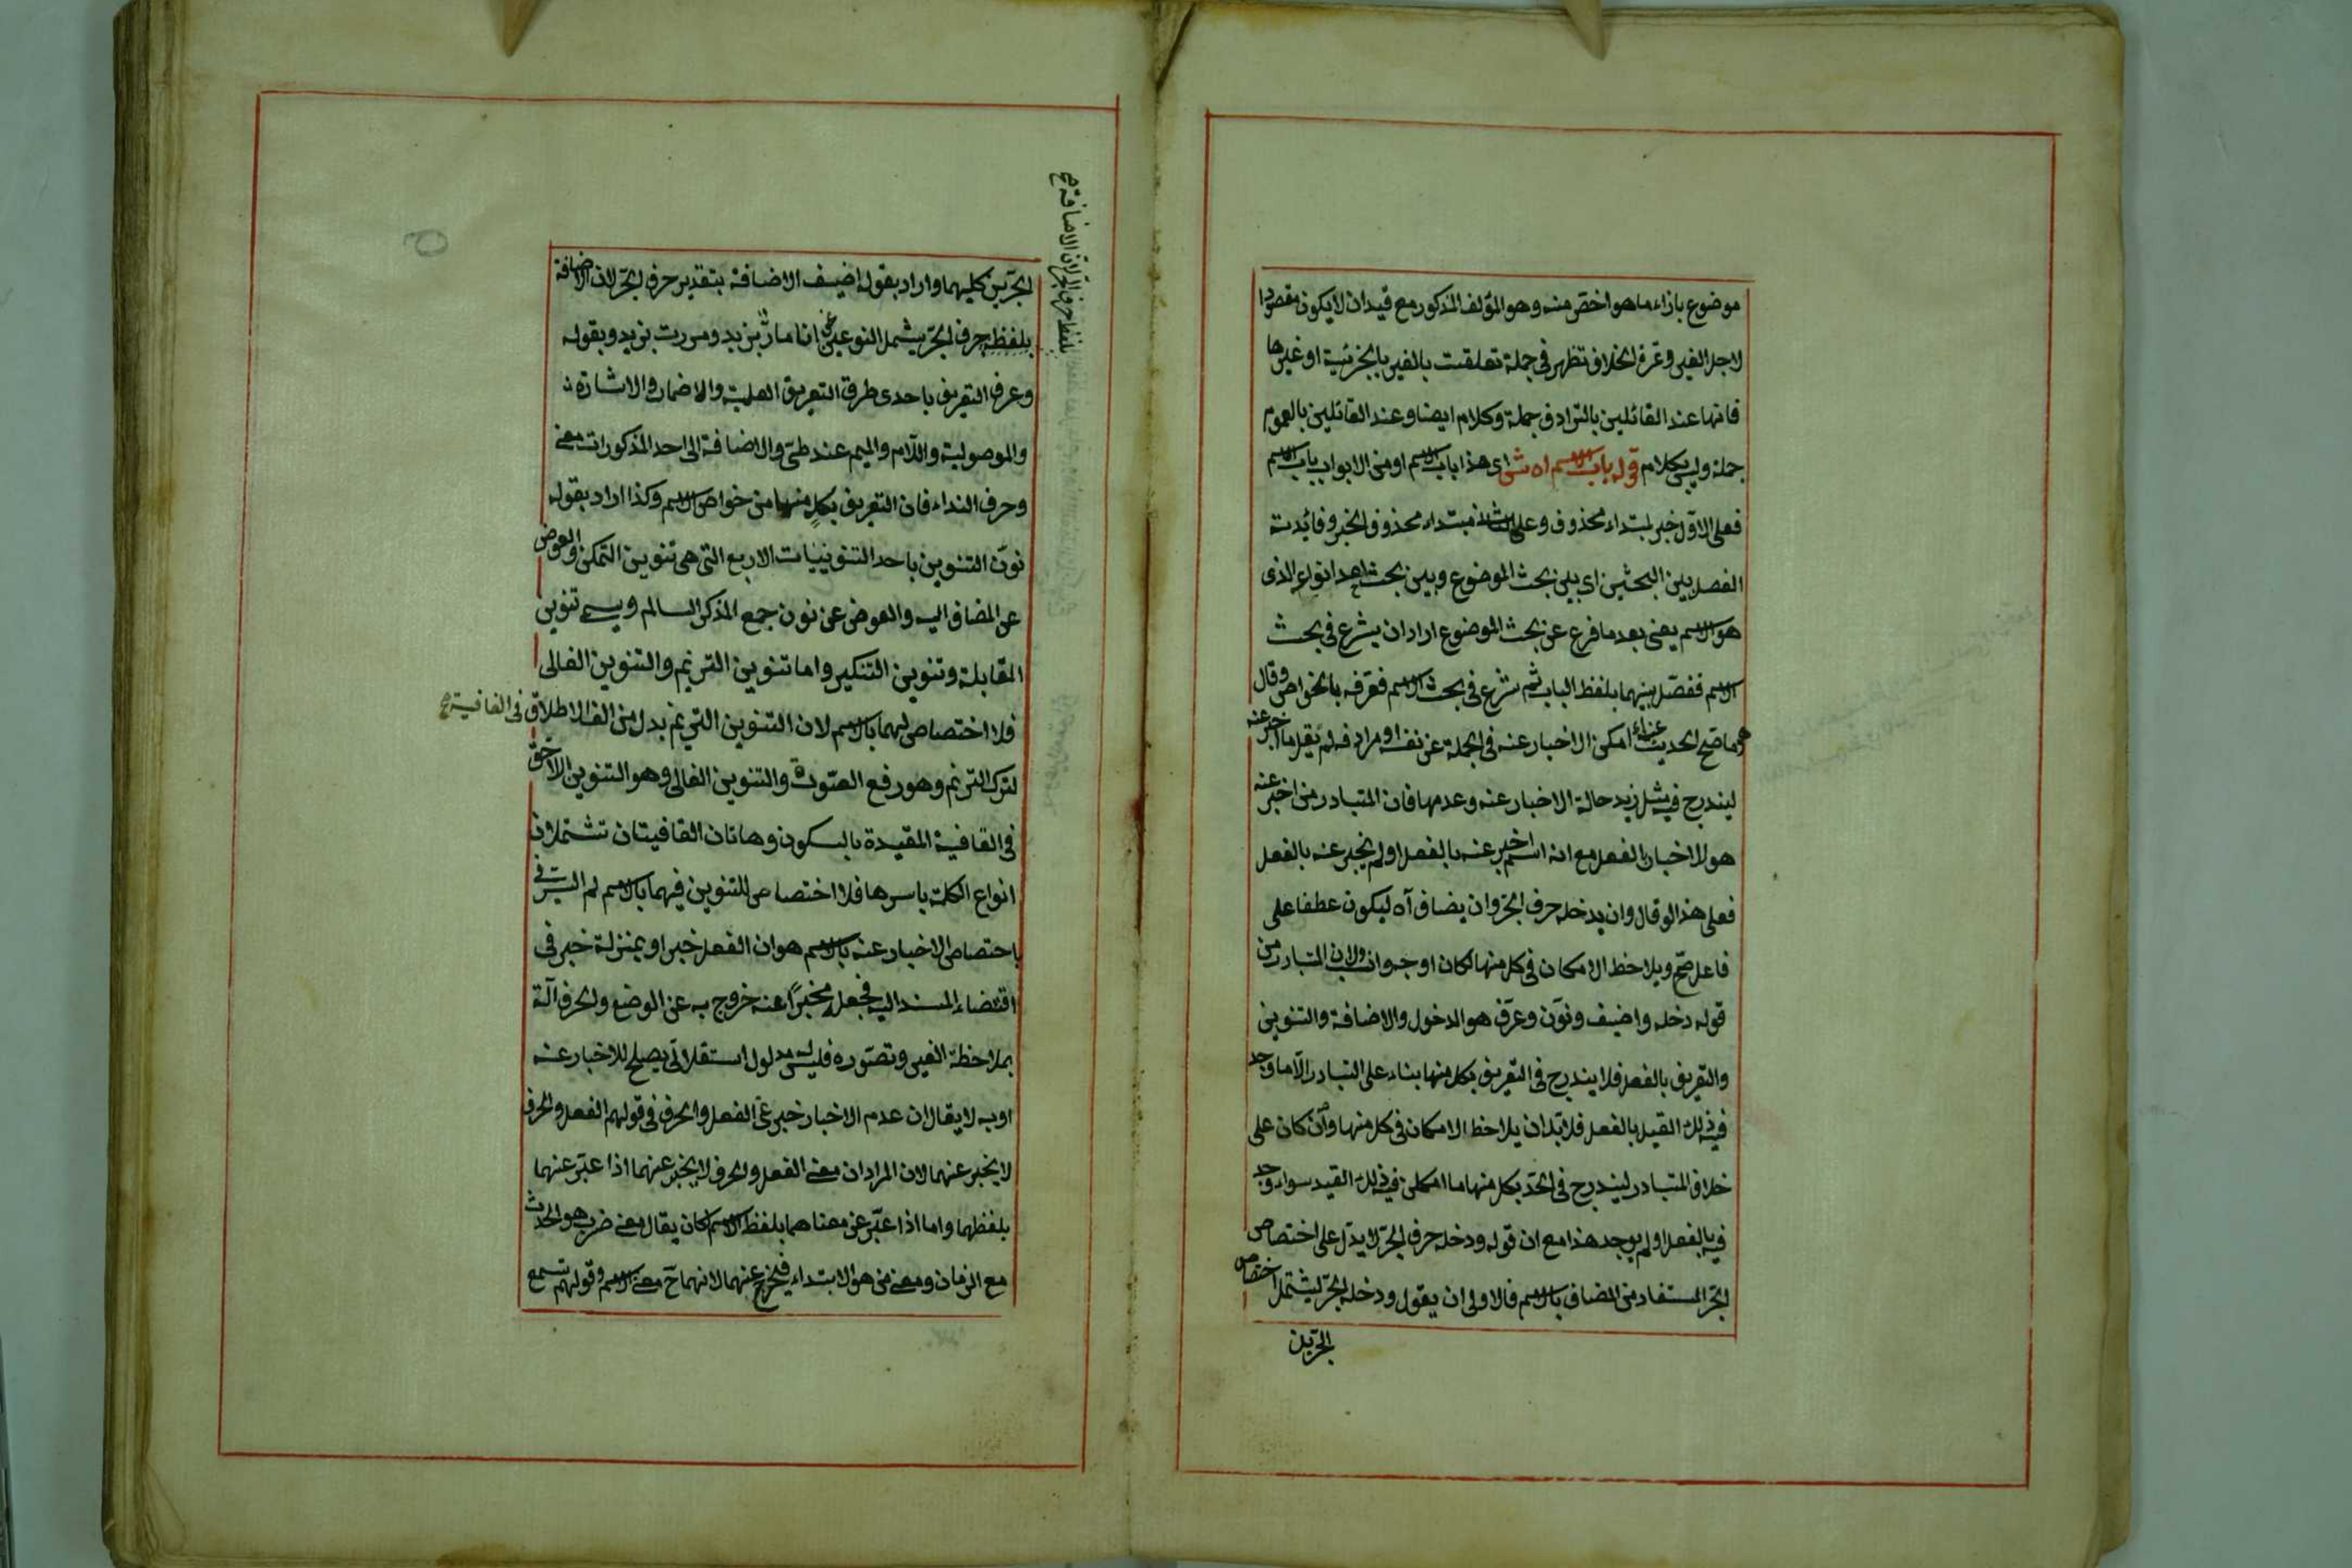 موضوع بازاء ما هو اخص منه وهو المؤلف المذكور مع قيد ان لا يكون مقصودا
لاجل الغير وثمرة الخلاف تظهر في جملة تعلقت بالغير بالجزئية او غيرها
فانها عند القائلين بالترادف جملة وكلام ايضا وعند القائلين بالعموم
جملة وليس بكلام قوله باب الاسم اه ش اى هذا باب الاسم او من الابواب باب الاسم
فعلى الاول خبر لمبتداء محذوف وعلى الثانى مبتداء محذوف الخبر وفائدته
الفصل بين البحثين اى بين بحث الموضوع وبين بحث احد انواع الذى
هو الاسم يعنى بعد ما فرغ عن بحث الموضوع اراد ان يشرع في بحث
الاسم ففصل بينهما بلفظ الباب ثم شرع في بحث الاسم فعرفه بالخواص وقال
هو ما صح الحديث عنه اى امكن الاخبار عنه في الجملة عن نفسه او مرادفه لم يقل ما اخبر عنه
ليندرج فيه مثل زيد حالة الاخبار عنه وعدمها فان المتبادر من اخبر عنه
هو الاخبار بالفعل مع انه اسم اخبر عنه بالفعل اولم يخبر عنه بالفعل
فعلى هذا لو قال وان يدخله حرف الجر وان يضاف آه ليكون عطفا على
فاعل صح ويلاحظ الامكان في كل منها لكان اوجه وانسب ولان المتبادر من
قوله دخله واضيف ونون وعرف هو الدخول والاضافة والتنوين
والتعريف بالفعل فلا يندرج في التعريف بكل منها بناء على التبادر الا ما وجد
فيه ذلك القيد بالفعل فلابد ان يلاحظ الامكان في كل منها وان كان على
خلاف المتبادر ليندرج في الحد بكل منها ما امكن فيه ذلك القيد سواء وجد
فيه بالفعل اولم يوجد هذا مع ان قوله ودخله حرف الجر لا يدل على اختصاص
الجر المستفاد من المضاف بالاسم فالاولى ان يقول ودخله الجر ليشتمل اختصاص
الجرين
الجرين كليهما واراد بقوله اضيف الاضافة بتقدير حرف الجر لان الاضافة
بلفظ حرف الجر يشمل النوعين نحو انا مار بزيد ومررت بزيد وبقوله
وعرف التعريف باحدى طرق التعريف العلمية والاضمار والاشارة
والموصولية واللام والميم عند طى والاضافة الى احد المذكورات معنى
وحرف النداء فان التعريف بكل منها من خواص الاسم وكذا اراد بقوله
نون التنوين باحد التنوينات الاربع التى هى تنوين التمكن والعوض
عن المضاف اليه والعوض عن نون جمع المذكر السالم ويسمى تنوين
المقابلة وتنوين التنكير واما تنوين الترنم والتنوين الغالى
فلا اختصاص لهما بالاسم لان التنوين الترنم بدل من الف الاطلاق في القافية صح
لترك الترنم وهو رفع الصوت والتنوين الغالى وهو التنوين اللاحق
في القافية المقيدة بالسكون وهاتان القافيتان تشتملان
انواع الكلمة باسرها فلا اختصاص للتنوين فيهما بالاسم ثم السر في
اختصاص الاخبار عنه بالاسم هو ان الفعل خبر او بمنزلة خبر في
اقتضاء المسند اليه فجعله مخبرا عنه خروج به عن الوضع والحرف آلة
بملاحظة الغير وتصوره فليس له مدلول استقلالى يصلح للاخبار عنه
او به لا يقال ان عدم الاخبار خبر عن الفعل والحرف في قولهم الفعل والحرف
لا يخبر عنهما لان المراد ان معنى الفعل والحرف لا يخبر عنهما اذا عبر عنهما
بلفظهما واما اذا عبر عن معناهما بلفظ الاسم كان يقال معنى ضرب هو الحدث
مع الزمان ومعنى من هو الابتداء فيخبر عنهما لانهما ح معنى الاسم وقولهم تسمع
بلفظ حرف الجر لان الاضافة صح